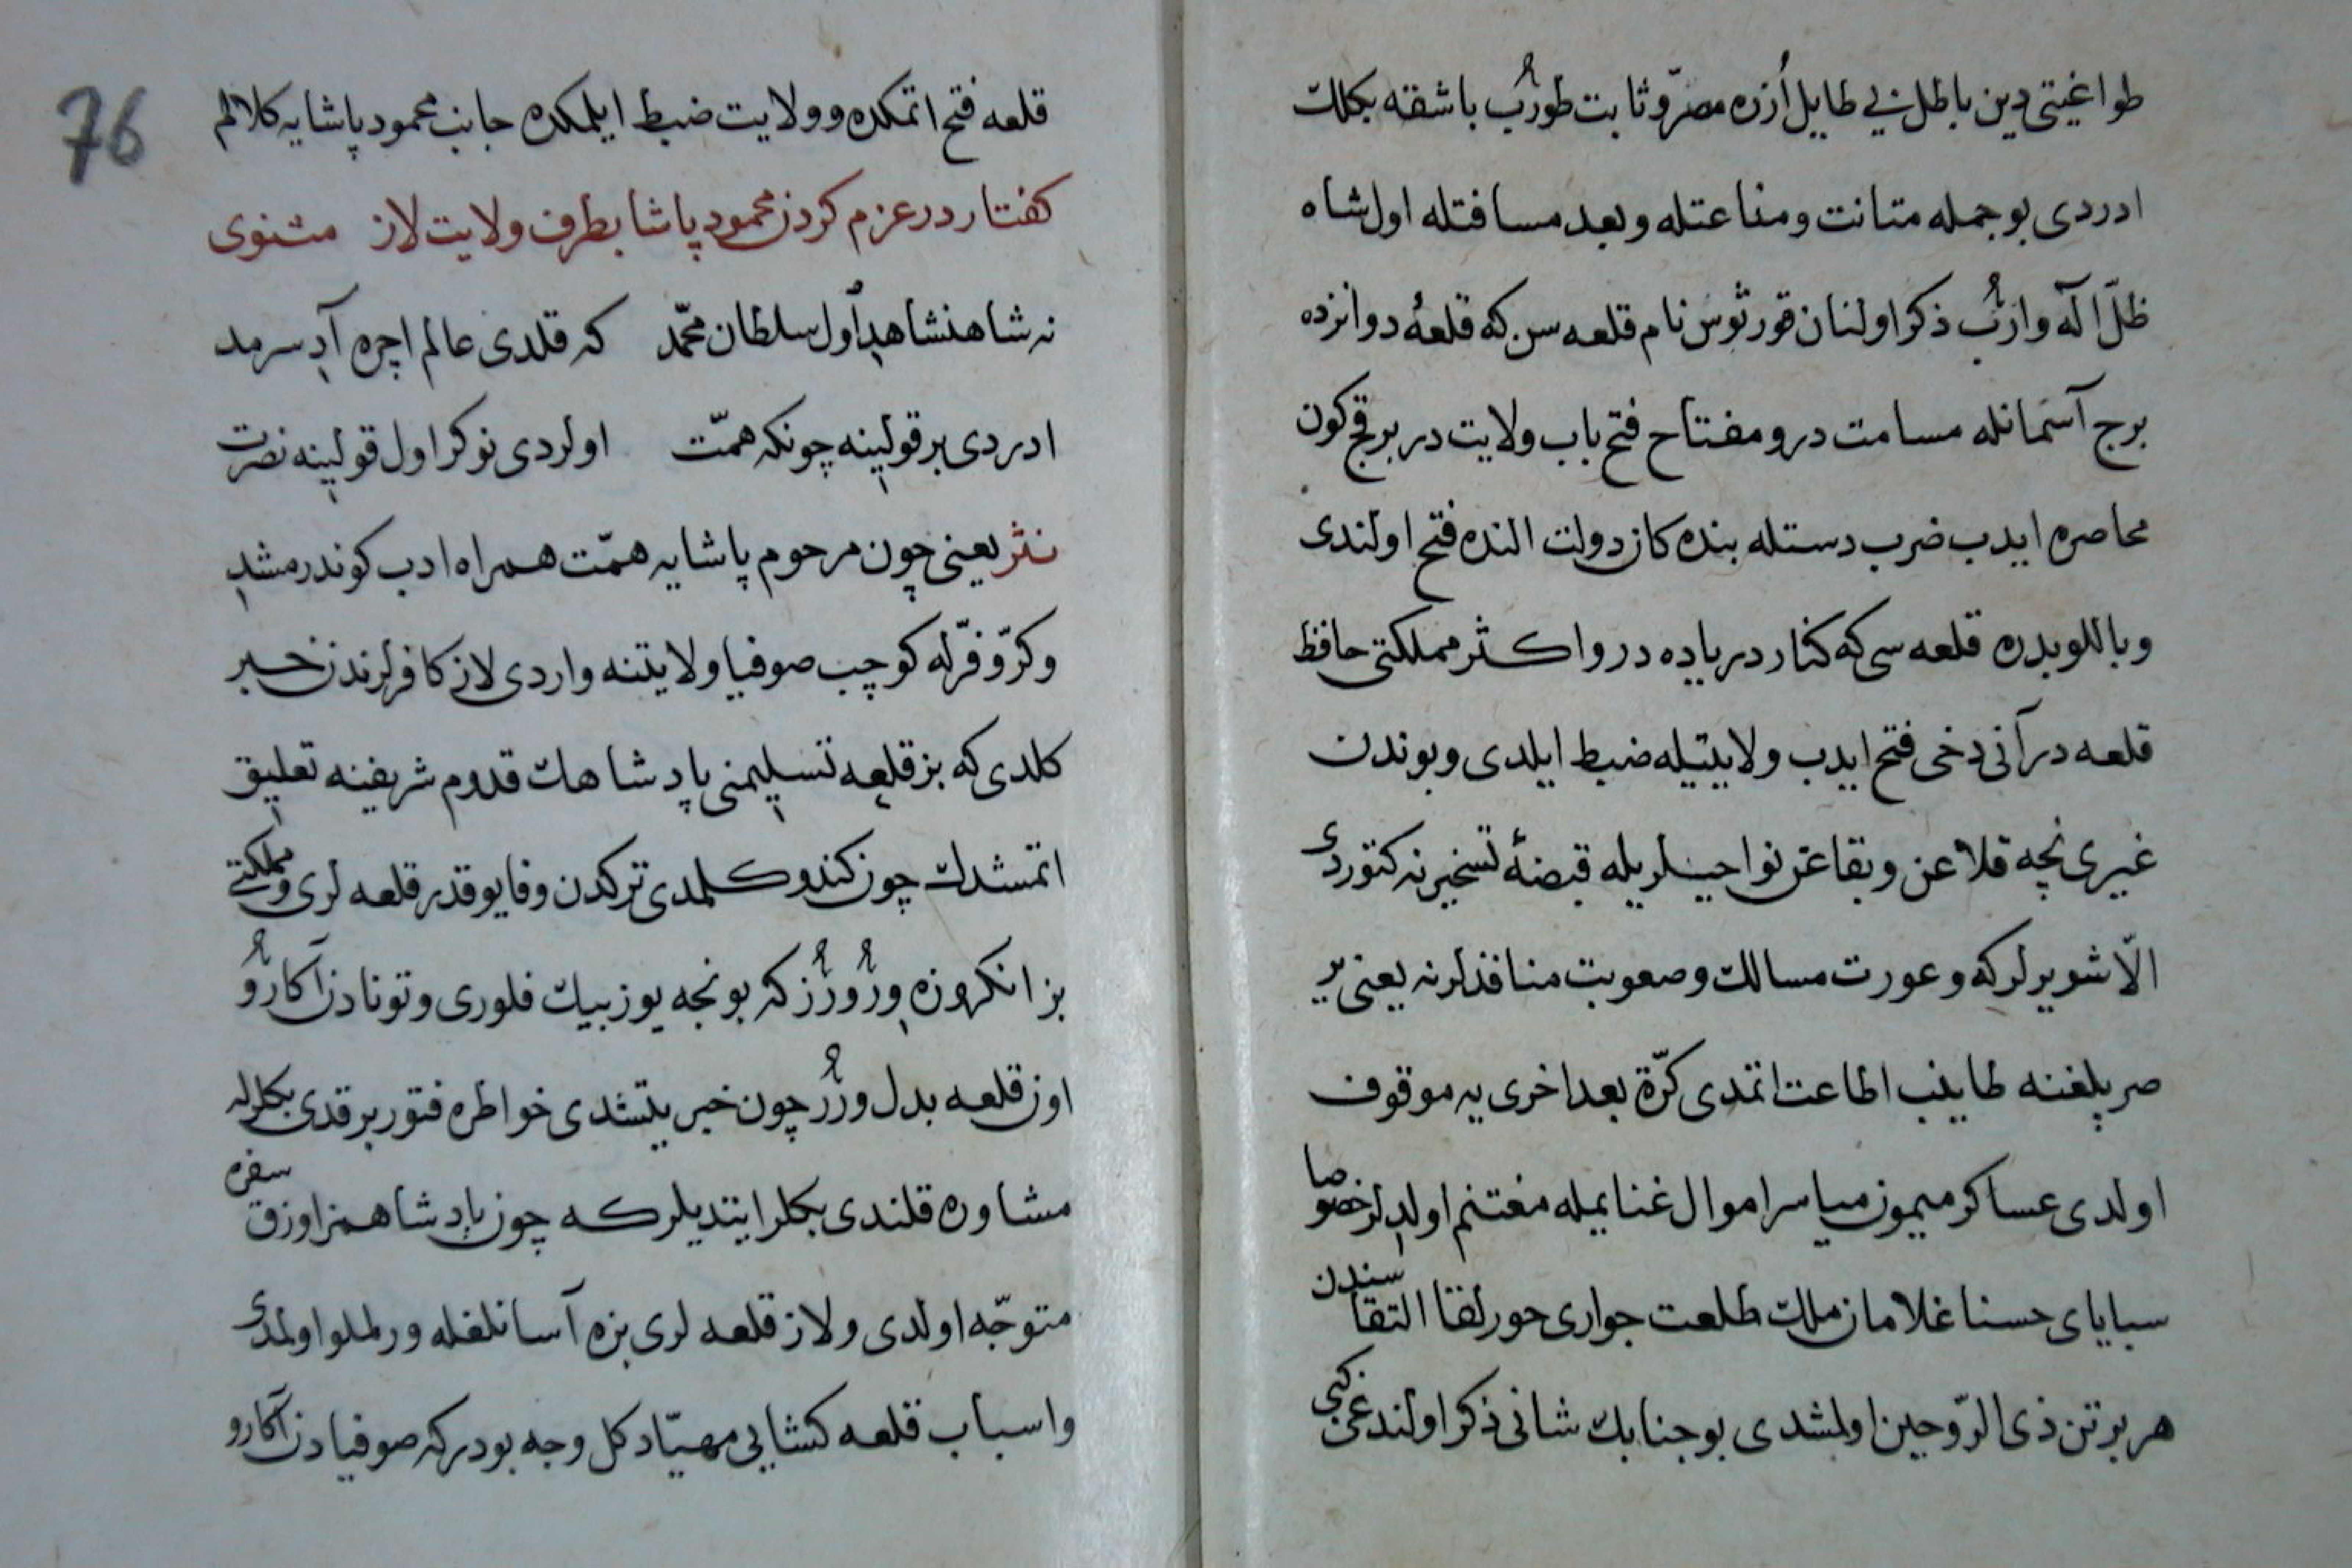 طواغیتی دین باطل بی طایل اُزره مصرّ و ثابت طورُب باشقه بکلك
ادردی بو جمله متانت و مناعتله و بعد مسافتله اول شاه
ظلّ اله وارُب ذکر اولنان قورثوس نام قلعه سن که قلعهٔ دوانزده
برج آسمانله مسامت در و مفتاح فتح باب ولایت در بر قچ کون
محاصره ایدب ضرب دستله بنده کان دولت النده فتح اولندی
و بالوبدره قلعه سی که کنار دریاده در و اکثر مملکتی حافظ
قلعه در آنی دخی فتح ایدب ولایتیله ضبط ایلدی و بوندن
غیری نچه قلاعن و بقاعن نواحیسلریله قبضهٔ تسخیرنه کتوردی
الّا شو یرلر که وعورت مسالك و صعوبت منافذلرنه یعنی یر
صرپلغنه طاینب اطاعت اتمدی کرّة بعد اخری یه موقوف
اولدی عساکر میمون میاسر اموال غنایمله مغتنم اولدلر خصوصا
سبایای حسنا غلامان ملك طلعت جواری حور لقا التقاسندن
هر بر تن ذی الرّوحین اولمشدی بو جنابك شانی ذکر اولندغی کبی
76
قلعه فتح اتمکده و ولایت ضبط ایلمکده جانب محمود پاشایه کلالم
کفتار در عزم کردن محمود پاشا بطرف ولایت لاز مثنوی
نه شاهنشاهدِ اول سلطان محمّد که قلدی عالم اچره آدِ سرمد
ادردی بر قولینه چونکه همّت اولردی نوکر اول قولینه نصرت
نثر یعنی چون مرحوم پاشایه همّت همراه ادب کوندرمشدِ
و کرّ و فرّله کوچب صوفیا ولایتنه واردی لاز کافرلرندن خبر
کلدی که بز قلعه تسلیمنی پادشاهك قدوم شریفینه تعلیق
اتمشدك چون کندو کلمدی ترکدن وفا یوقدر قلعه لری و مملکتی
بز انکروزه ورُوررُز که بو نجه یوز بیك فلوری و تونادن آکارو
اوز قلعه بدل ورُر چون خبر یتشدی خواطره فتور برقدی بکلرله
مشاوره قلندی بکلر ایتدیلر که چون پادشاهمز اوزق سفره
متوجّه اولدی و لاز قلعه لری بزه آسانلغله ورلملو اولمدی
و اسباب قلعه کشایی مهیّا دکل وجه بودر که صوفیادن آکارو